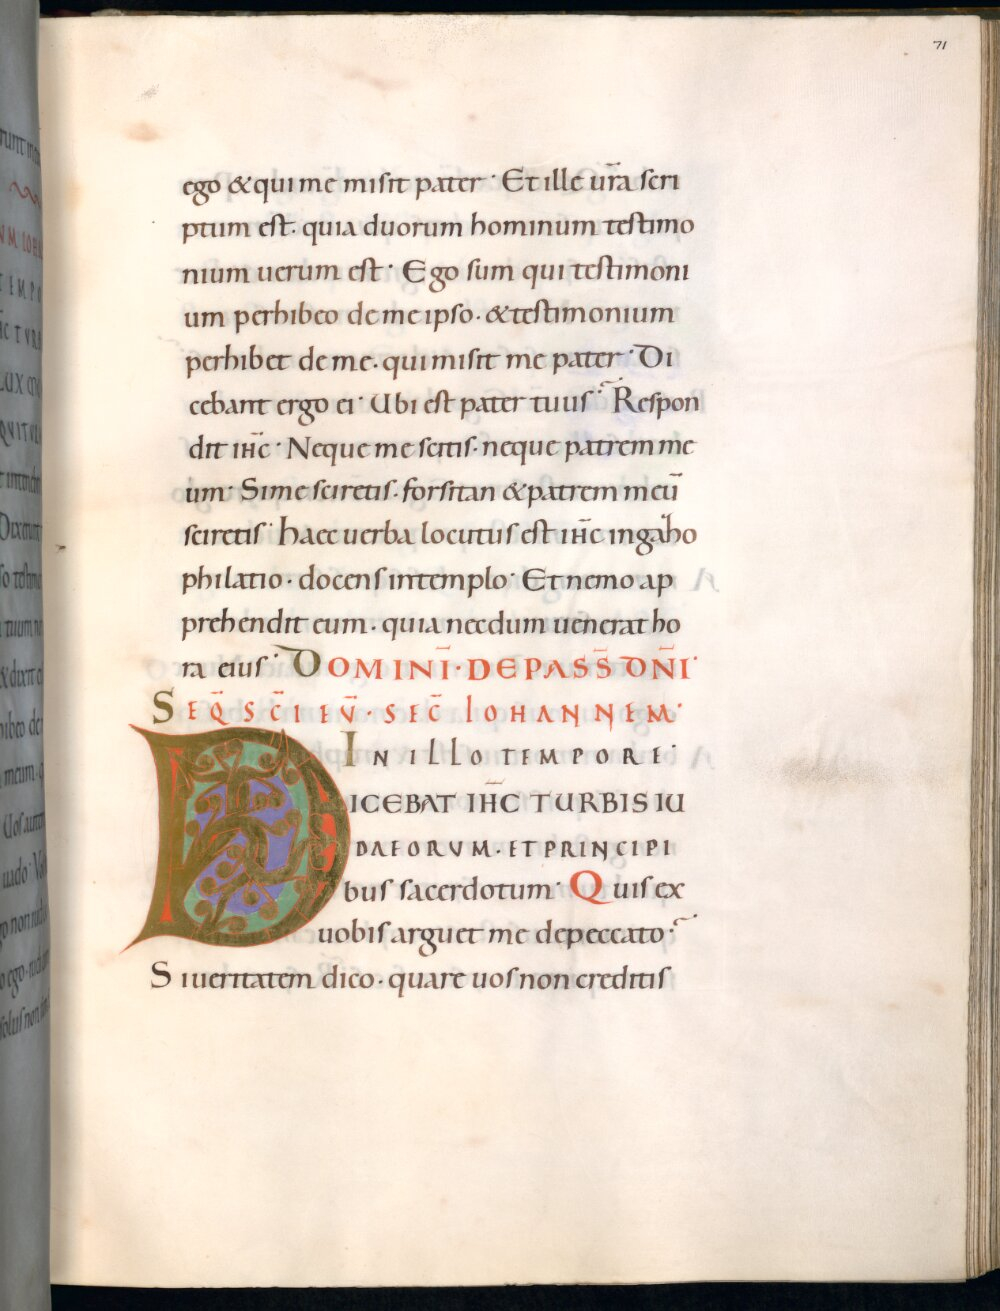 71
ego & qui me misit pater · Et in lege ur̅a scri
ptum est · quia duorum hominum testimo
nium uerum est · Ego sum qui testimoni
um perhibeo de me ipso · & testimonium
perhibet de me · qui misit me pater · Di
cebant ergo ei · Ubi est pater tuus · Respon
dit ih̅c · Neque me scitis · neque patrem me
um · Si me sciretis · forsitan & patrem meu̅
sciretis · haec uerba locutus est ih̅c in gazo
philatio · docens in templo · Et nemo ap
prehendit eum · quia necdum uenerat ho
ra eius · DOMINI̅ · DE PASS̅ DN̅I ·
SEQ̅ SC̅I EV̅ · SEC̅ IOHANNEM ·
IN ILLO TEMPORE ·
DICEBAT IH̅C TURBIS IU
DAEORUM · ET PRINCIPI
bus sacerdotum · Quis ex
uobis arguet me de peccato ·
Si ueritatem dico · quare uos non creditis